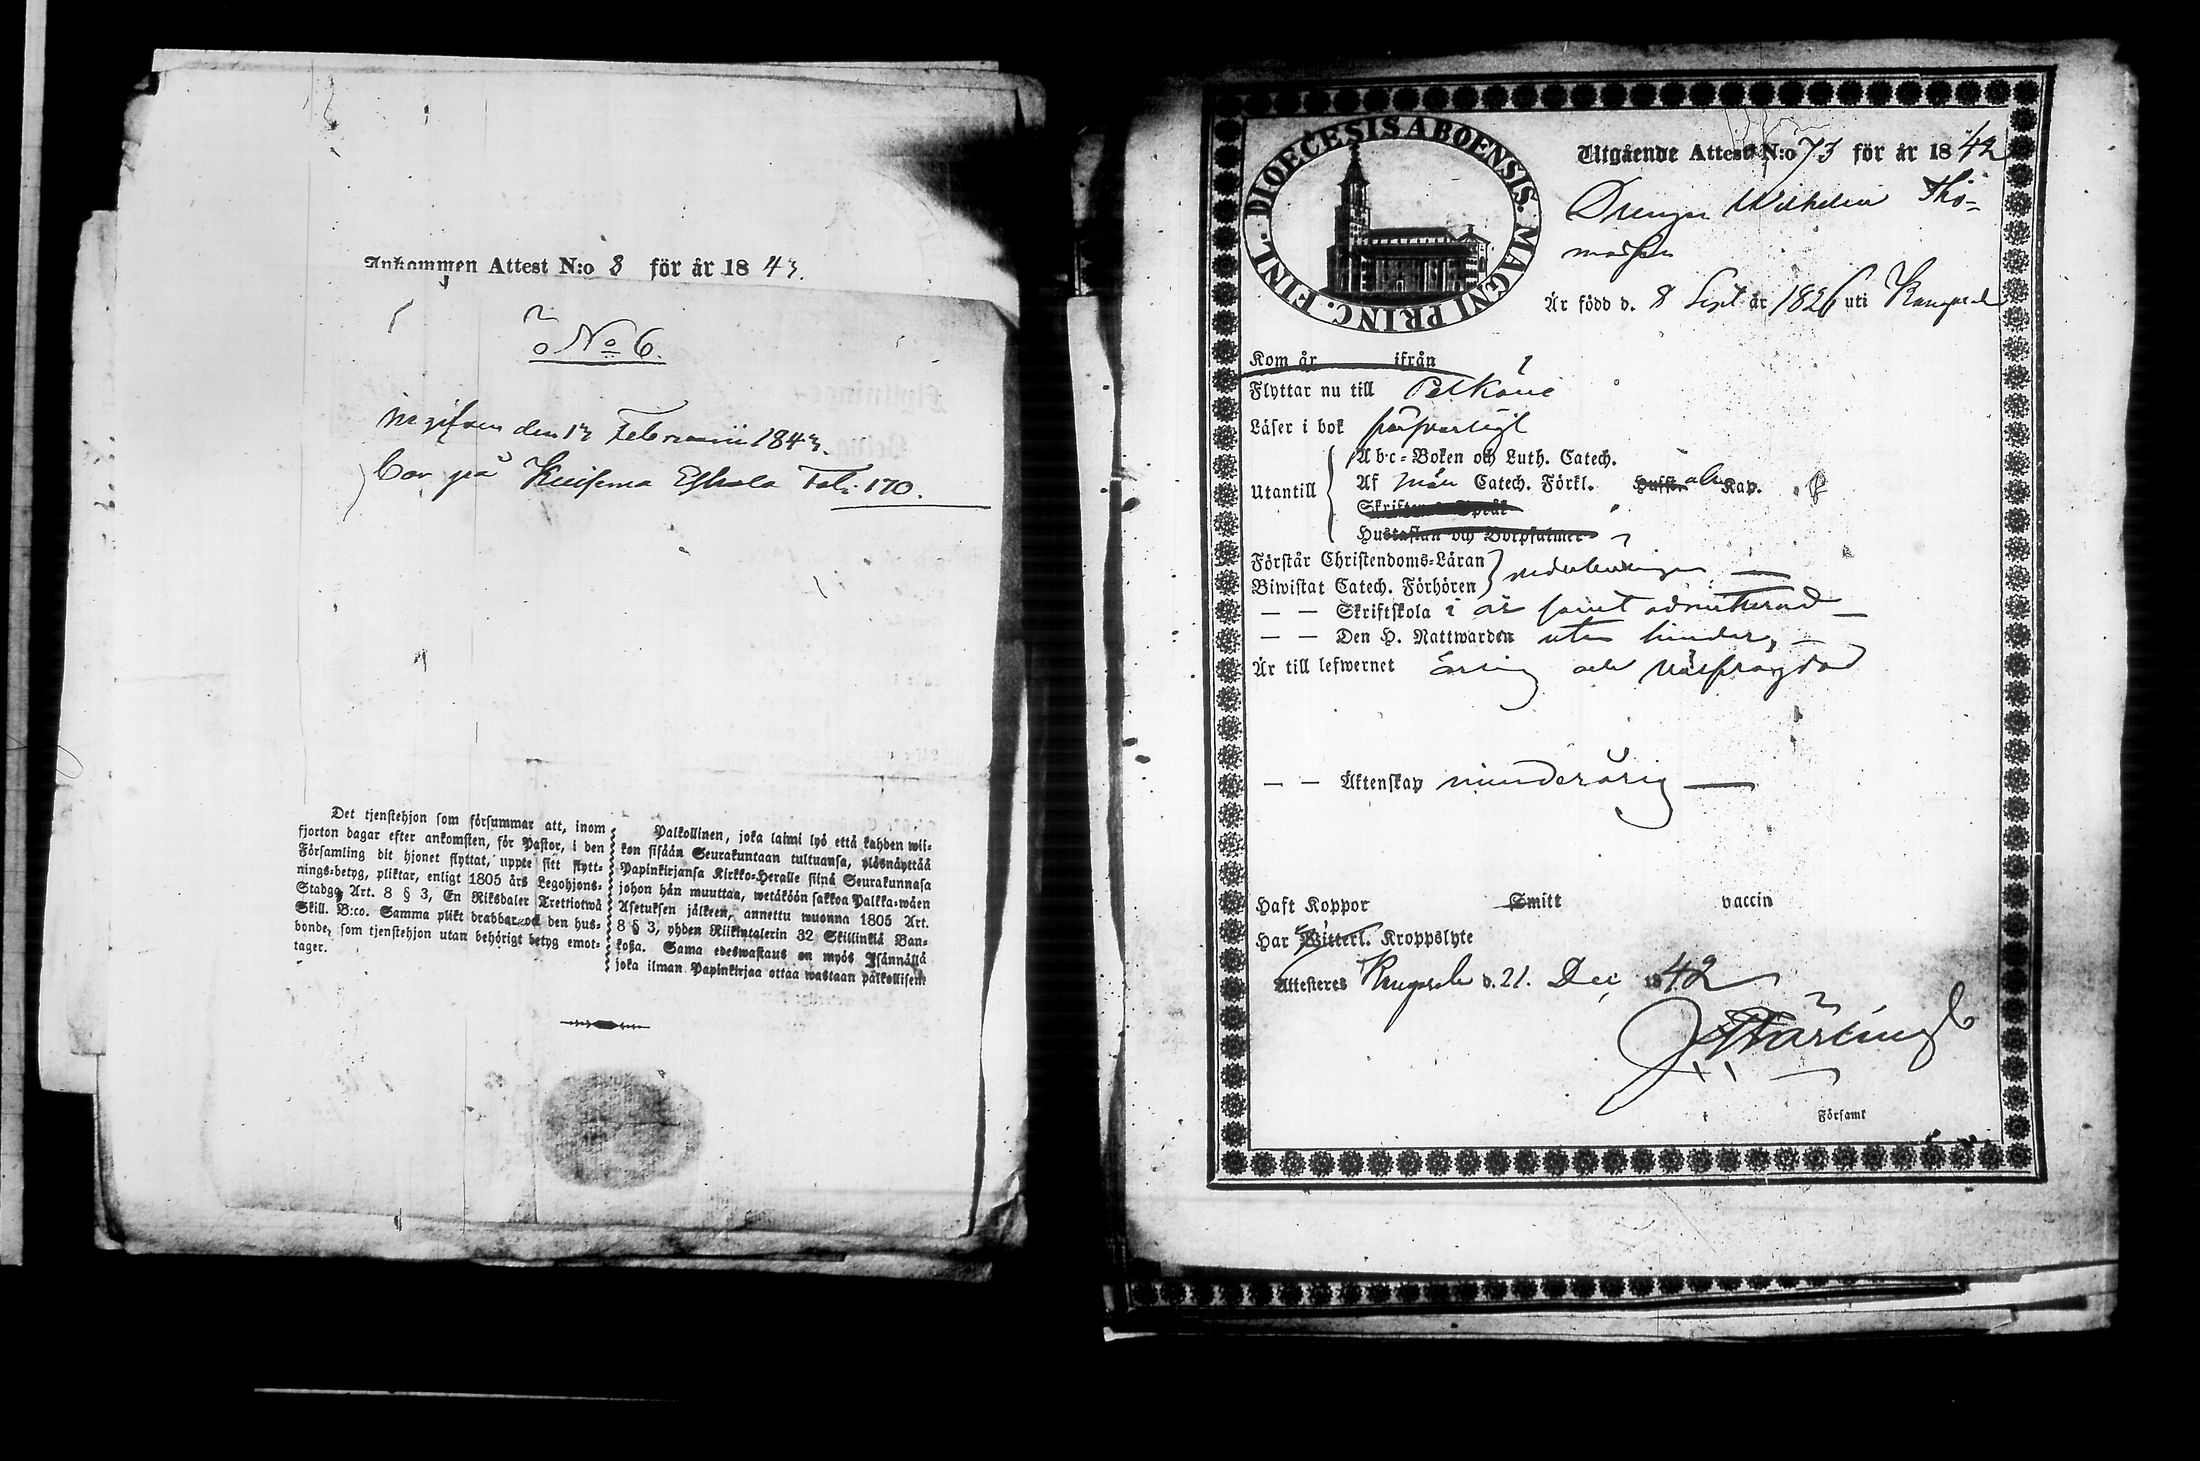 Ankommen Attest N:o 8 för år 1843.
No 6.
Ingifven den 13 Februarii 1843.
Bor på Kuisema Eskola Fol: 170.
Det tjenstehjon som försummar att, inom
fjorton dagar efter ankomsten, för Pastor, i den
Församling dit hjonet flyttat, uppte sitt flytt-
nings-betyg, pliktar, enligt 1805 års Legohjons-
Stadga Art. 8 § 3, En Riksdaler Trettiotwå
Skill. B:co. Samma plikt drabbar ock den hus-
bonde, som tjenstehjon utan behörigt betyg emot-
tager.
Palkollinen, joka laimi lyö että kahden wii-
kon sisään Seurakuntaan tultuansa, ylösnäyttää
Papinkirjansa Kirkko-Heralle siinä Seurakunnasa
johon hän muuttaa, wetäköön sakkoa Palkka-wäen
Asetuksen jälkeen, annettu wuonna 1805 Art.
8 § 3, yhden Riikintalerin 32 Skillinkiä Ban-
kosa. Sama edeswastaus on myös Isännällä
joka ilman Papinkirjaa ottaa wastaan palkollisen
DIOECESIS ABOENSIS. MAGNI PRINC. FINL.
Utgående Attest N:o 73 för år 1842
Drengen Wilhelm Tho-
masson
Är född d. 8 Sept år 1826 uti Kangasala
Kom år ifrån
Flyttar nu till Pelkäne
Läser i bok försvarligt
Utantill
Abc-Boken och Luth. Catech.
Af Catech. Förkl. Hussl. Kap.
Skriftenes Språk
Hustaflan och Botpsalmer
Förstår Christendoms-Läran
Biwistat Catech. Förhören
— — Skriftskola i år samt admitterad —
— — Den H. Nattwarden utan hinder, —
Är till lefwernet ärlig och välfrägdad
— — Äktenskap minderårig —
Haft Koppor Smitt vaccin
Har Witterl. Kroppslyte
Attesteres Kangasala d. 21. Dec 1842
Församl